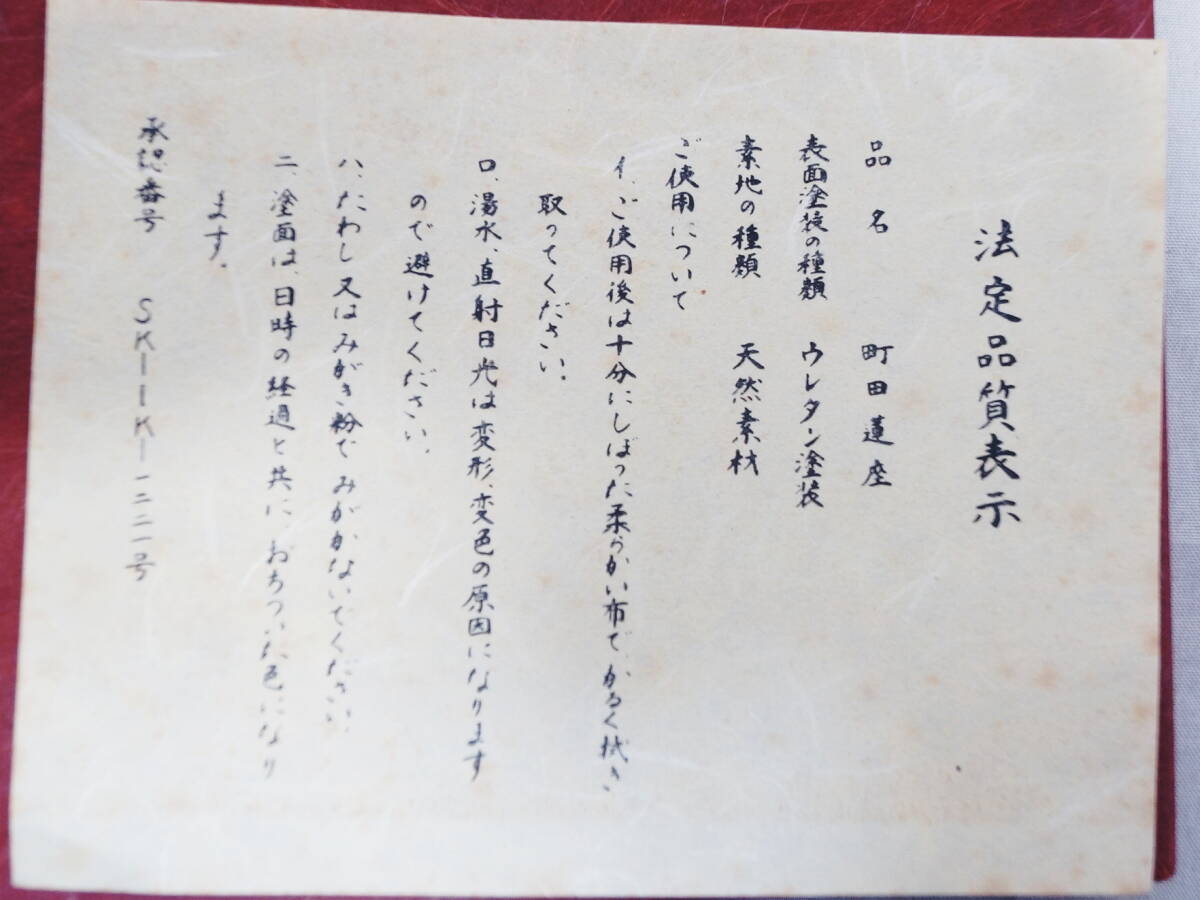 法定品質表示
品名 町田蓮座
表面塗装の種類 ウレタン塗装
素地の種類 天然素材
ご使用について
イ、ご使用後は十分にしぼった柔らかい布で、かるく拭き
取ってください。
ロ、湯水、直射日光は変形、変色の原因になります
ので避けてください。
ハ、たわし又はみがき粉でみがかないでください。
ニ、塗面は、日時の経過と共に、おちついた色になり
ます。
承認番号 SK―IK―一二二一号